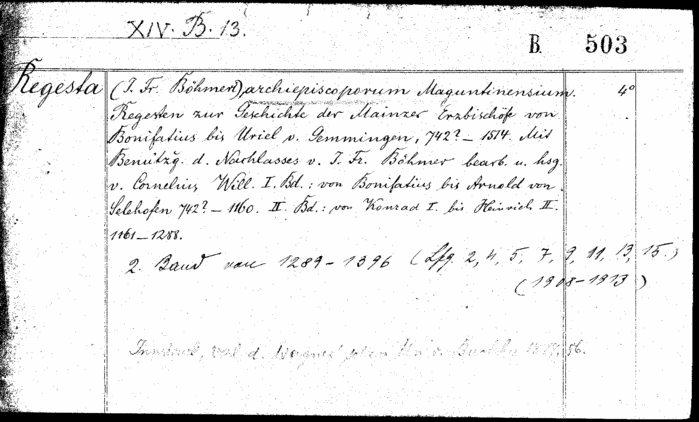 XIV. B. 13.
B. 503
Regesta (I. Fr. Böhmeri) archiepiscoporum Maguntinensium. 4°
Regesten zur Geschichte der Mainzer Erzbischöfe von
Bonifatius bis Uriel v. Gemmingen, 742?–1514. Mit
Benützg. d. Nachlasses v. I. Fr. Böhmer bearb. u. hsg.
v. Cornelius Will. I. Bd.: von Bonifatius bis Arnold von
Selehofen 742?–1160. II. Bd.: von Konrad I. bis Heinrich II.
1161–1288.
2. Band von 1289–1396 (Lfg. 2, 4, 5, 7, 9, 11, 13, 15.)
(1908–1913)
Innsbruck, d. Wagner'